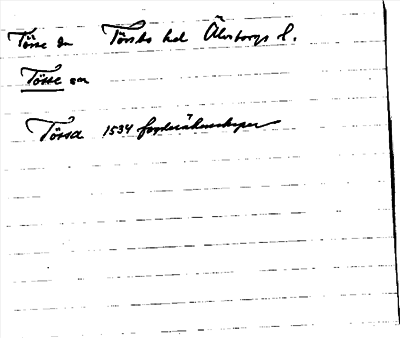 Tösse sn Tössbo hd Älvsborgs l.
Tösse sn
Tössa 1534 jorderäkenskaper